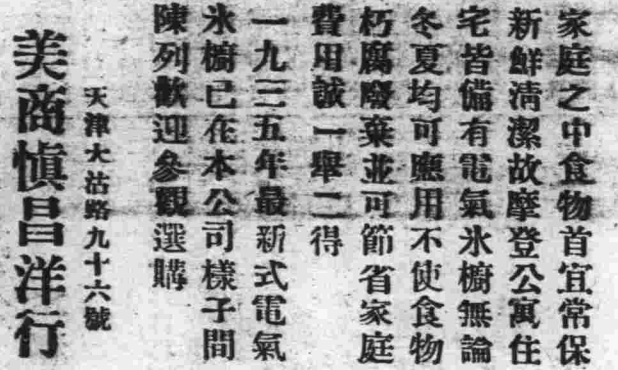 家庭之中食物首宜常保
新鮮清潔故摩登公寓住
宅皆備有電氣氷櫥無論
冬夏均可應用不使食物
朽腐廢棄並可節省家庭
費用誠一舉二得
一九三五年最新式電氣
氷櫥已在本公司樣子間
陳列歡迎參觀選購
天津大沽路九十六號
美商慎昌洋行